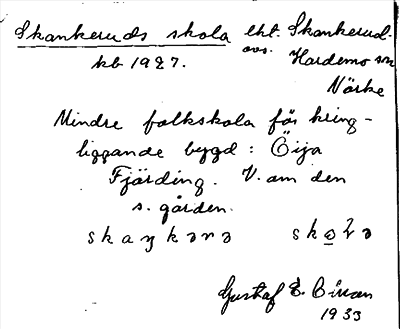 Skankeruds skola ekt. Skankerud.
kb 1927. avs. Hardemo sn
Närke
Mindre folkskola för kring-
liggande bygd: Öija
Fjärding. V. om den
s. gården.
Gustaf E.
1933